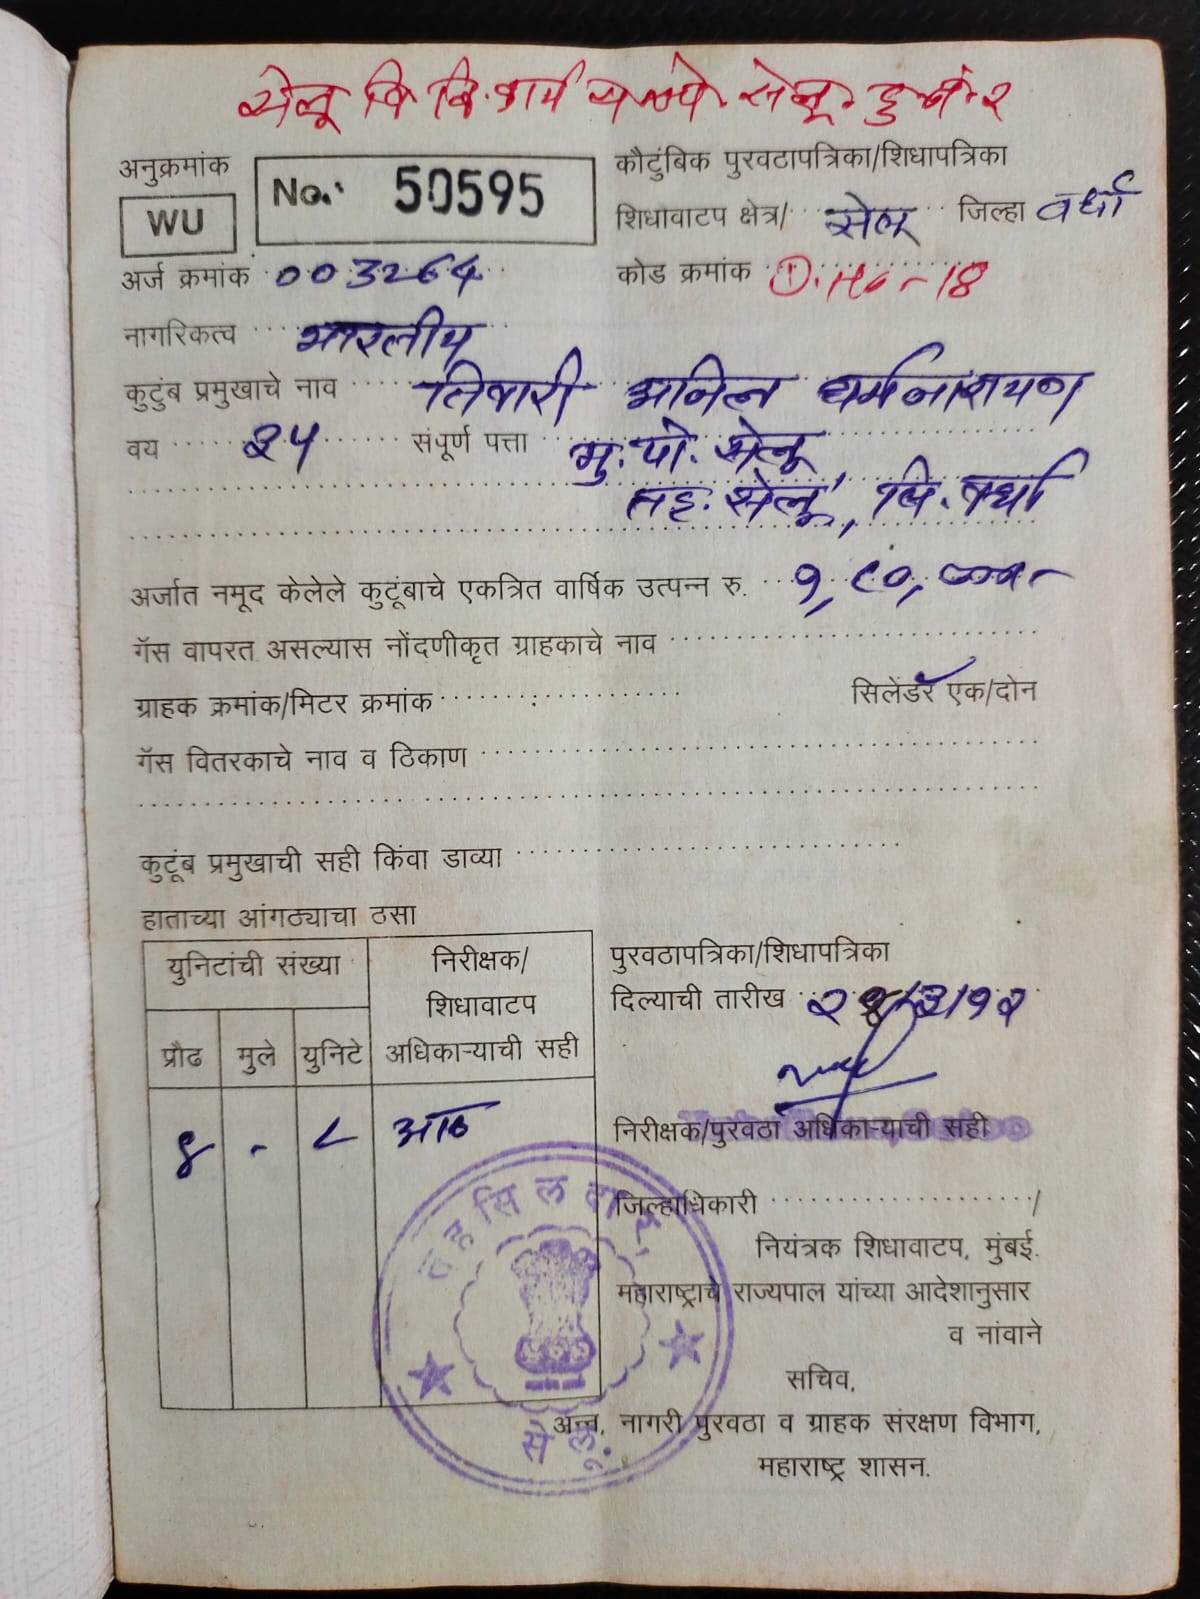 सेलू वि. वि. कार्य. सेलू. दु. नं. २
अनुक्रमांक
WU
No. 50595
कौटुंबिक पुरवठापत्रिका/शिधापत्रिका
शिधावाटप क्षेत्र/ सेलू जिल्हा वर्धा
अर्ज क्रमांक 003264
कोड क्रमांक
नागरिकत्व भारतीय
कुटुंब प्रमुखाचे नाव तिवारी अनिल धर्मनारायण
वय ३५ संपूर्ण पत्ता मु. पो. सेलू
तह. सेलू, जि. वर्धा
अर्जात नमूद केलेले कुटूंबाचे एकत्रित वार्षिक उत्पन्न रु.
गॅस वापरत असल्यास नोंदणीकृत ग्राहकाचे नाव
ग्राहक क्रमांक/मिटर क्रमांक सिलेंडर एक/दोन
गॅस वितरकाचे नाव व ठिकाण
कुटूंब प्रमुखाची सही किंवा डाव्या
हाताच्या आंगठ्याचा ठसा
युनिटांची संख्या
निरीक्षक/
शिधावाटप
अधिकाऱ्याची सही
प्रौढ मुले युनिटे
४ - ८ आठ
पुरवठापत्रिका/शिधापत्रिका
दिल्याची तारीख
निरीक्षक/पुरवठा अधिकाऱ्याची सही
जिल्हाधिकारी /
नियंत्रक शिधावाटप, मुंबई.
महाराष्ट्राचे राज्यपाल यांच्या आदेशानुसार
व नांवाने
सचिव,
अन्न, नागरी पुरवठा व ग्राहक संरक्षण विभाग,
महाराष्ट्र शासन.
तहसिलदार,
सेलू.